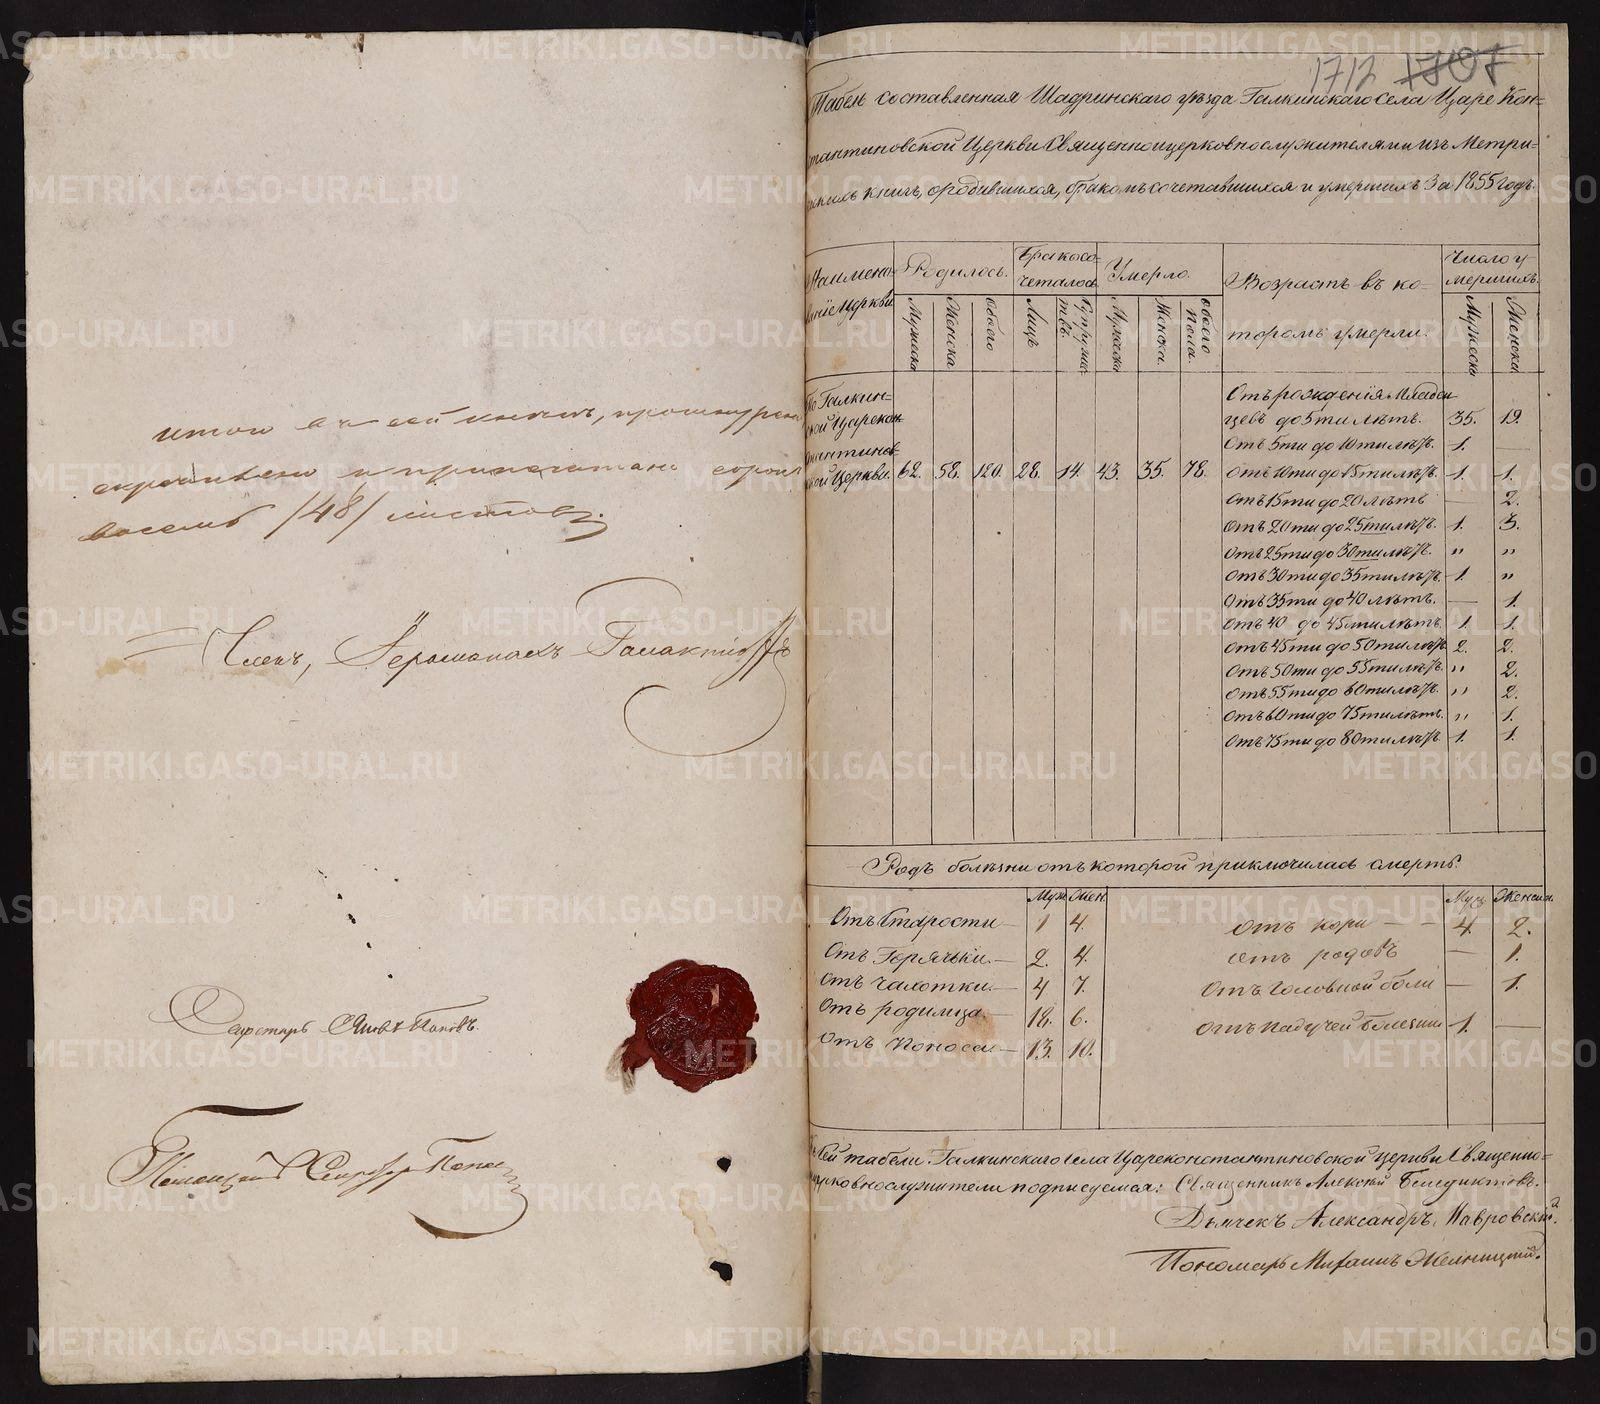 итого въ сей книгѣ, прошнуровано
скрѣплено и припечатано сорокъ
восемь /48/ листовъ.
Членъ, Іеромонахъ Галактіонъ
Секретарь Яковъ Поповъ.
1712 1707
Табель составленная Шадринскаго уѣзда Галкинскаго села Царе Кон=
стантиновской Церкви Священноцерковнослужителями изъ Метри=
ческихъ книгъ, о родившихся, бракомъ сочетавшихся и умершихъ за 1855 годъ.
Наимено-
ваніе Церкви
Родилось.
Мужеска
Женска
Обоего
Бракосо-
четалось
Лицъ
Супруже-
ствъ.
Умерло.
Мужеска
Женска.
Обоего
пола.
Возрастъ въ ко-
торомъ умерли.
Число у-
мершихъ.
Мужеска
Женска
По Галкин-
ской Царекон-
стантинов-
ской Церкви. 62. 58. 120. 28. 14. 43. 35. 78.
Отъ рожденія Младен-
цевъ до 5ти лѣтъ. 35. 19.
Отъ 5ти до 10ти лѣтъ. 1. —
Отъ 10ти до 15ти лѣтъ. 1. 1.
Отъ 15ти до 20 лѣтъ — 2.
Отъ 20ти до 25ти лѣтъ. 1. 3.
Отъ 25ти до 30ти лѣтъ. " "
Отъ 30ти до 35ти лѣтъ. 1. "
Отъ 35ти до 40 лѣтъ. — 1.
Отъ 40 до 45ти лѣтъ. 1. 1.
Отъ 45ти до 50ти лѣтъ. 2. 2.
Отъ 50ти до 55ти лѣтъ. " 2.
Отъ 55ти до 60ти лѣтъ. " 2.
Отъ 60ти до 75ти лѣтъ. " 1.
Отъ 75ти до 80ти лѣтъ. 1. 1.
Родъ болѣзни отъ которой приключилась смерть.
Муж. Жен.
Отъ Старости — 1 4.
Отъ Горячьки. — 2. 4.
Отъ Чахотки. — 4 7.
Отъ родимца. — 18. 6.
Отъ Поноса. — 13. 10.
Муж. Женска.
Отъ кори — — 4. 2.
Отъ родовъ — 1.
Отъ Головной боли — 1.
Отъ Падучей болезни 1. —
Къ сей табели Галкинскаго села Цареконстантиновской церкви Священно-
церковнослужители подписуемся: Священникъ Алексѣй Бенедиктовъ.
Дьячекъ Александръ Лавровскій.
Пономарь Михаилъ Желницкій.
METRIKI.GASO-URAL.RU